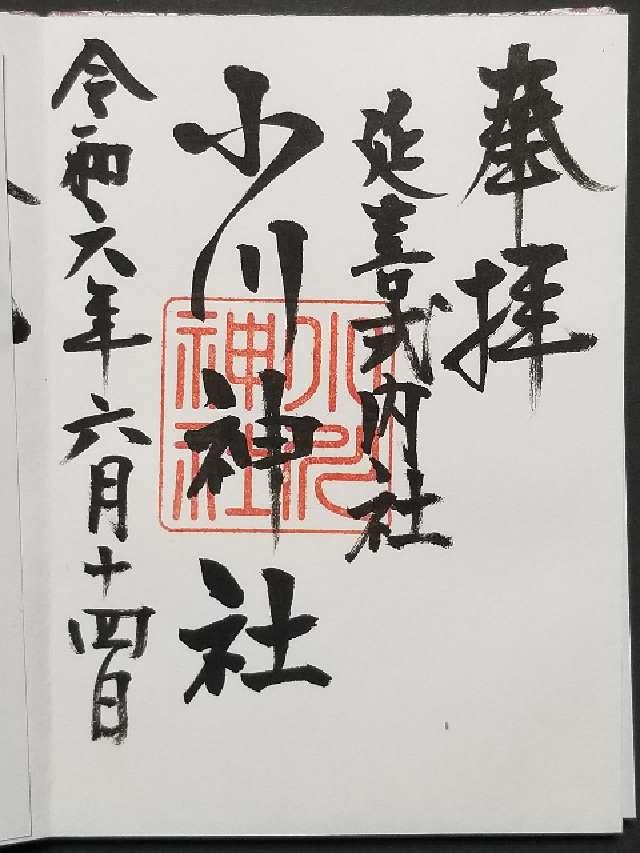 奉拝
延喜式内社
小川神社
小川
神社
令和六年六月十四日